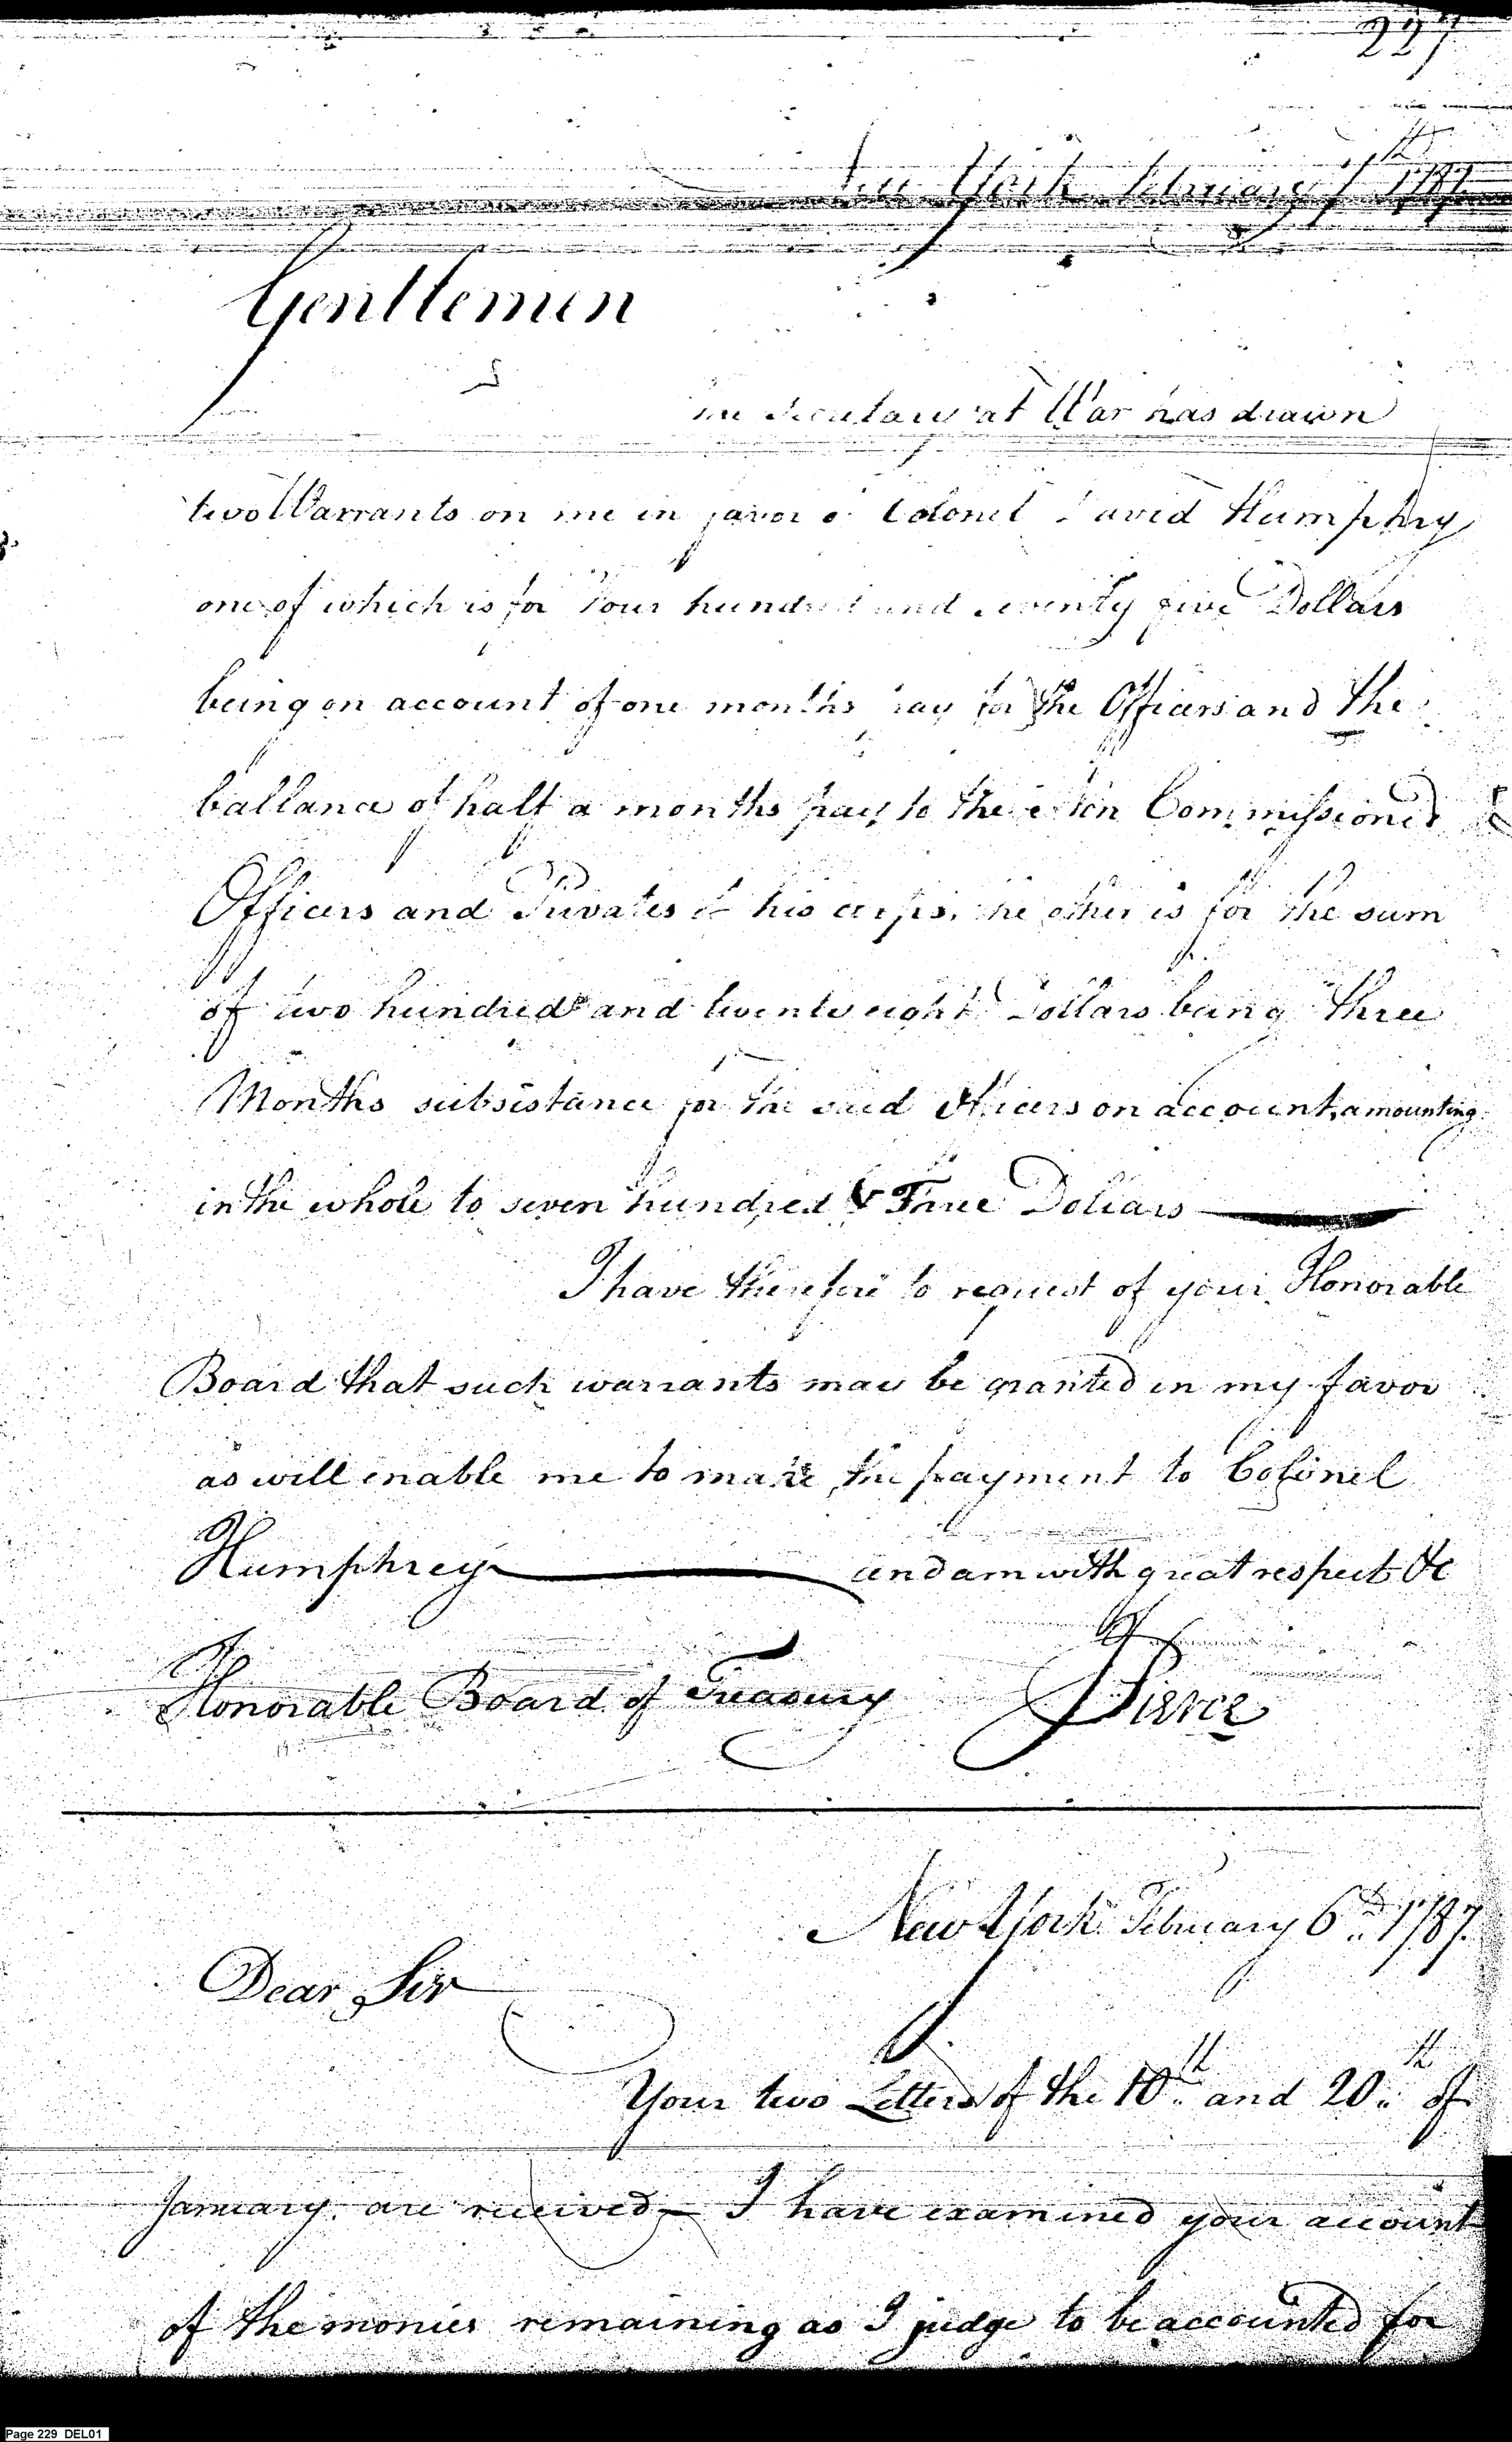 227
New York February 1787
Gentlemen
The Secretary at War has drawn
two Warrants on me in favor of Colonel David Humphry
one of which is for Four hundred and seventy five Dollars
being on account of one months pay for the Officers and the
ballance of half a months pay to the Non Commissioned
Officers and Privates of his corps, the other is for the sum
of two hundred and twenty eight Dollars being three
Months subsistance for the said Officers on account, amounting
in the whole to seven hundred & Three Dollars
I have therefore to request of your Honorable
Board that such warrants may be granted in my favor
as will enable me to make the payment to Colonel
Humphrey and am with great respect &c
Honorable Board of Treasury Pierce
New York February 6th 1787.
Dear Sir
Your two Letters of the 10th and 20th of
January are received — I have examined your account
of the monies remaining as I judge to be accounted for
Page 229 DEL01